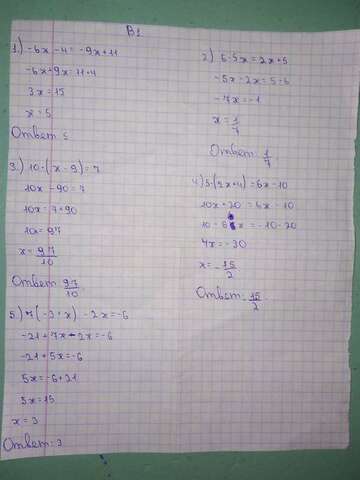 В1
1.) -6x - 4 = -9x + 11
-6x + 9x = 11 + 4
3x = 15
x = 5
Ответ 5
2) 6-5x = 2x + 5
-5x - 2x = 5 - 6
-7x = -1
x = 1/7
Ответ: 1/7
3.) 10·(x - 9) = 7
10x - 90 = 7
10x = 7 + 90
10x = 97
x = 97/10
Ответ: 97/10
4) 5·(2x+4) = 6x - 10
10x + 20 = 6x - 10
10 - 6x = -10 - 20
4x = -30
x = -15/2
Ответ: 15/2
5) 7(-3+x) - 2x = -6
-21 + 7x - 2x = -6
-21 + 5x = -6
5x = -6 + 21
5x = 15
x = 3
Ответ: 3